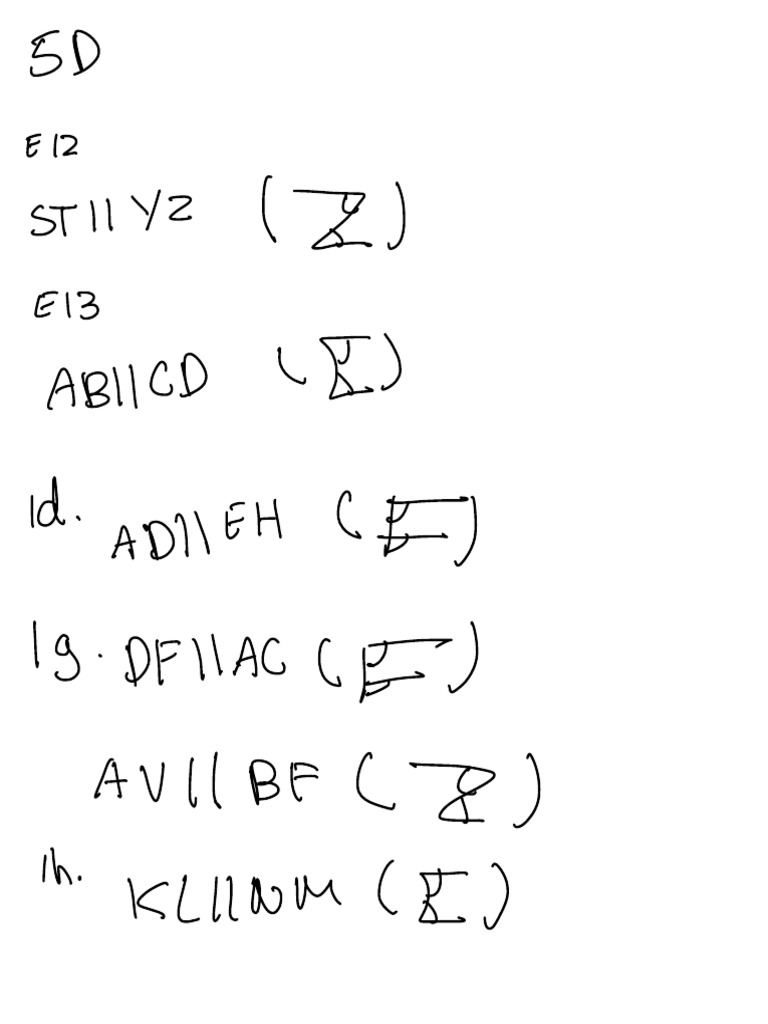 5D
E12
ST || YZ ( )
E13
AB || CD ( )
1d. AD || EH ( )
1g. DF || AC ( )
AV || BF ( )
1h. KL || NM ( )